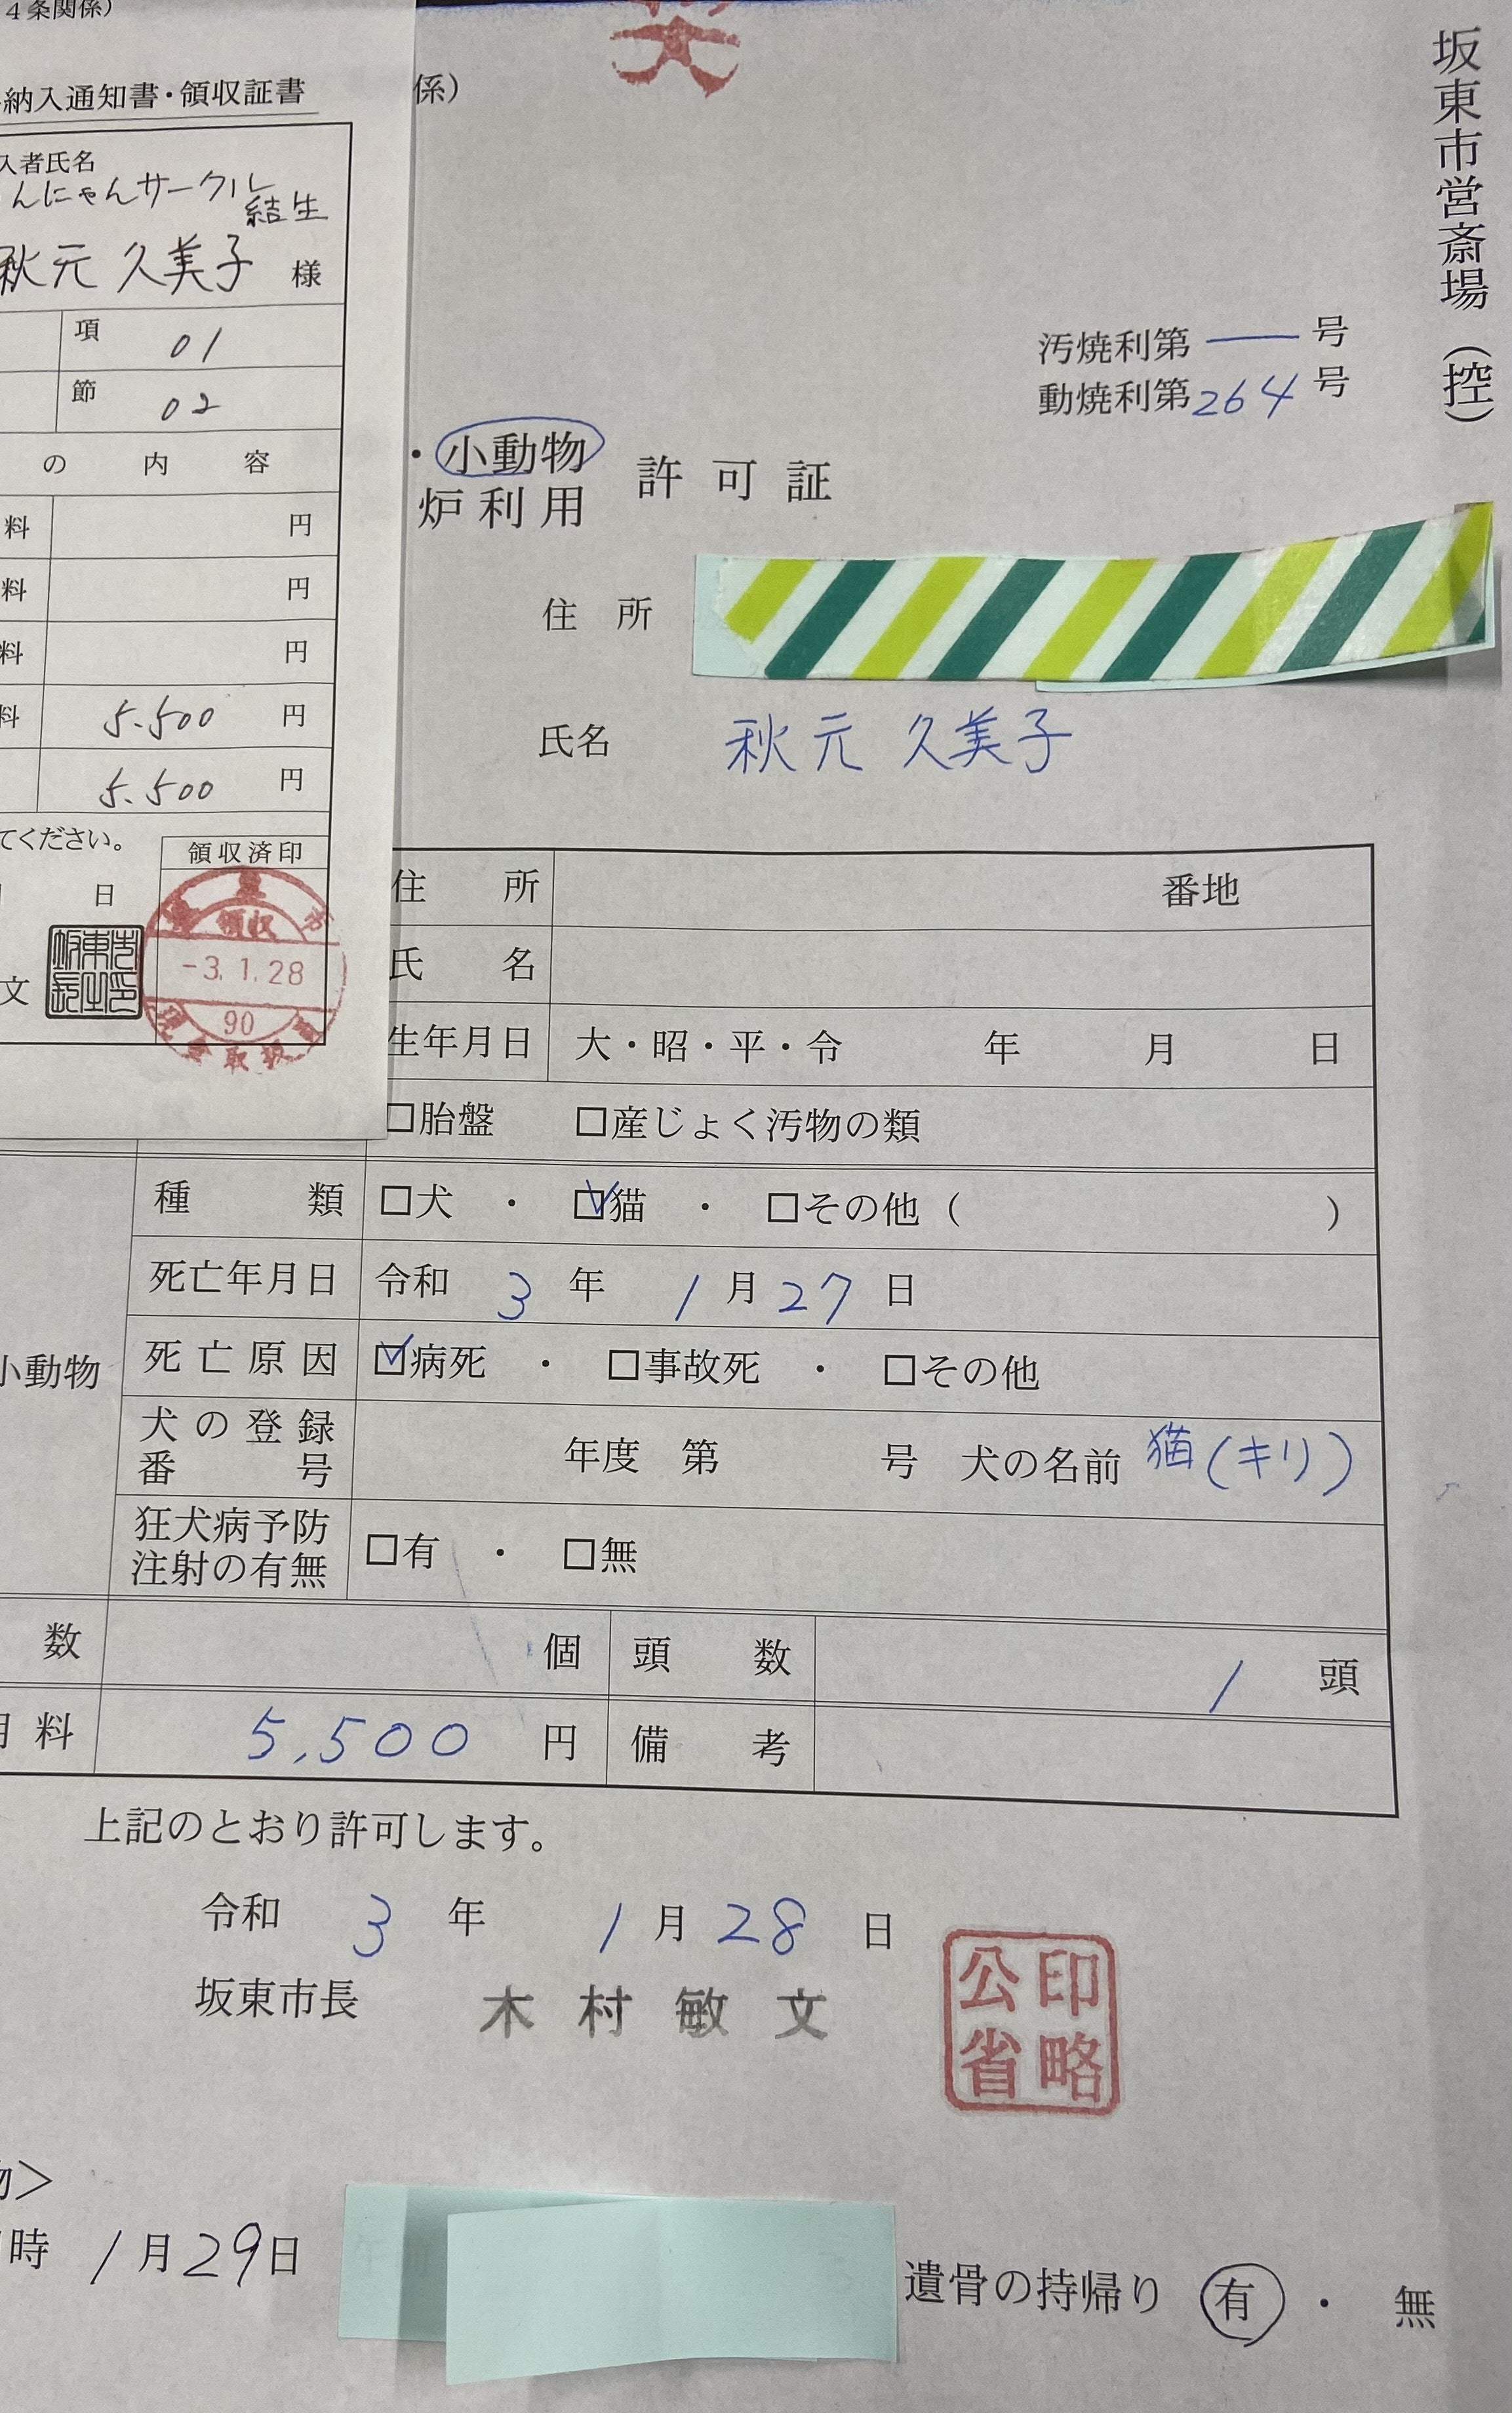 4条関係）
納入通知書・領収証書
入者氏名
んにゃんサークル
結生
秋元 久美子 様
項 01
節 02
の 内 容
料 円
料 円
料 円
料 5.500 円
5.500 円
てください。
領収済印
日
文
領収
-3.1.28
90
係）
坂東市営斎場（控）
汚焼利第 ― 号
動焼利第 264 号
・小動物
炉利用 許可証
住 所
氏名 秋元 久美子
住 所 番地
氏 名
生年月日 大・昭・平・令 年 月 日
□胎盤 □産じょく汚物の類
小動物
種 類 □犬 ・ ☑猫 ・ □その他（ ）
死亡年月日 令和 3 年 1 月 27 日
死亡原因 ☑病死 ・ □事故死 ・ □その他
犬の登録番号 年度 第 号 犬の名前 猫（キリ）
狂犬病予防注射の有無 □有 ・ □無
数 個 頭 数 1 頭
料 5,500 円 備 考
上記のとおり許可します。
令和 3 年 1 月 28 日
坂東市長 木村敏文
公印省略
物＞
時 1月29日 遺骨の持帰り 有 ・ 無